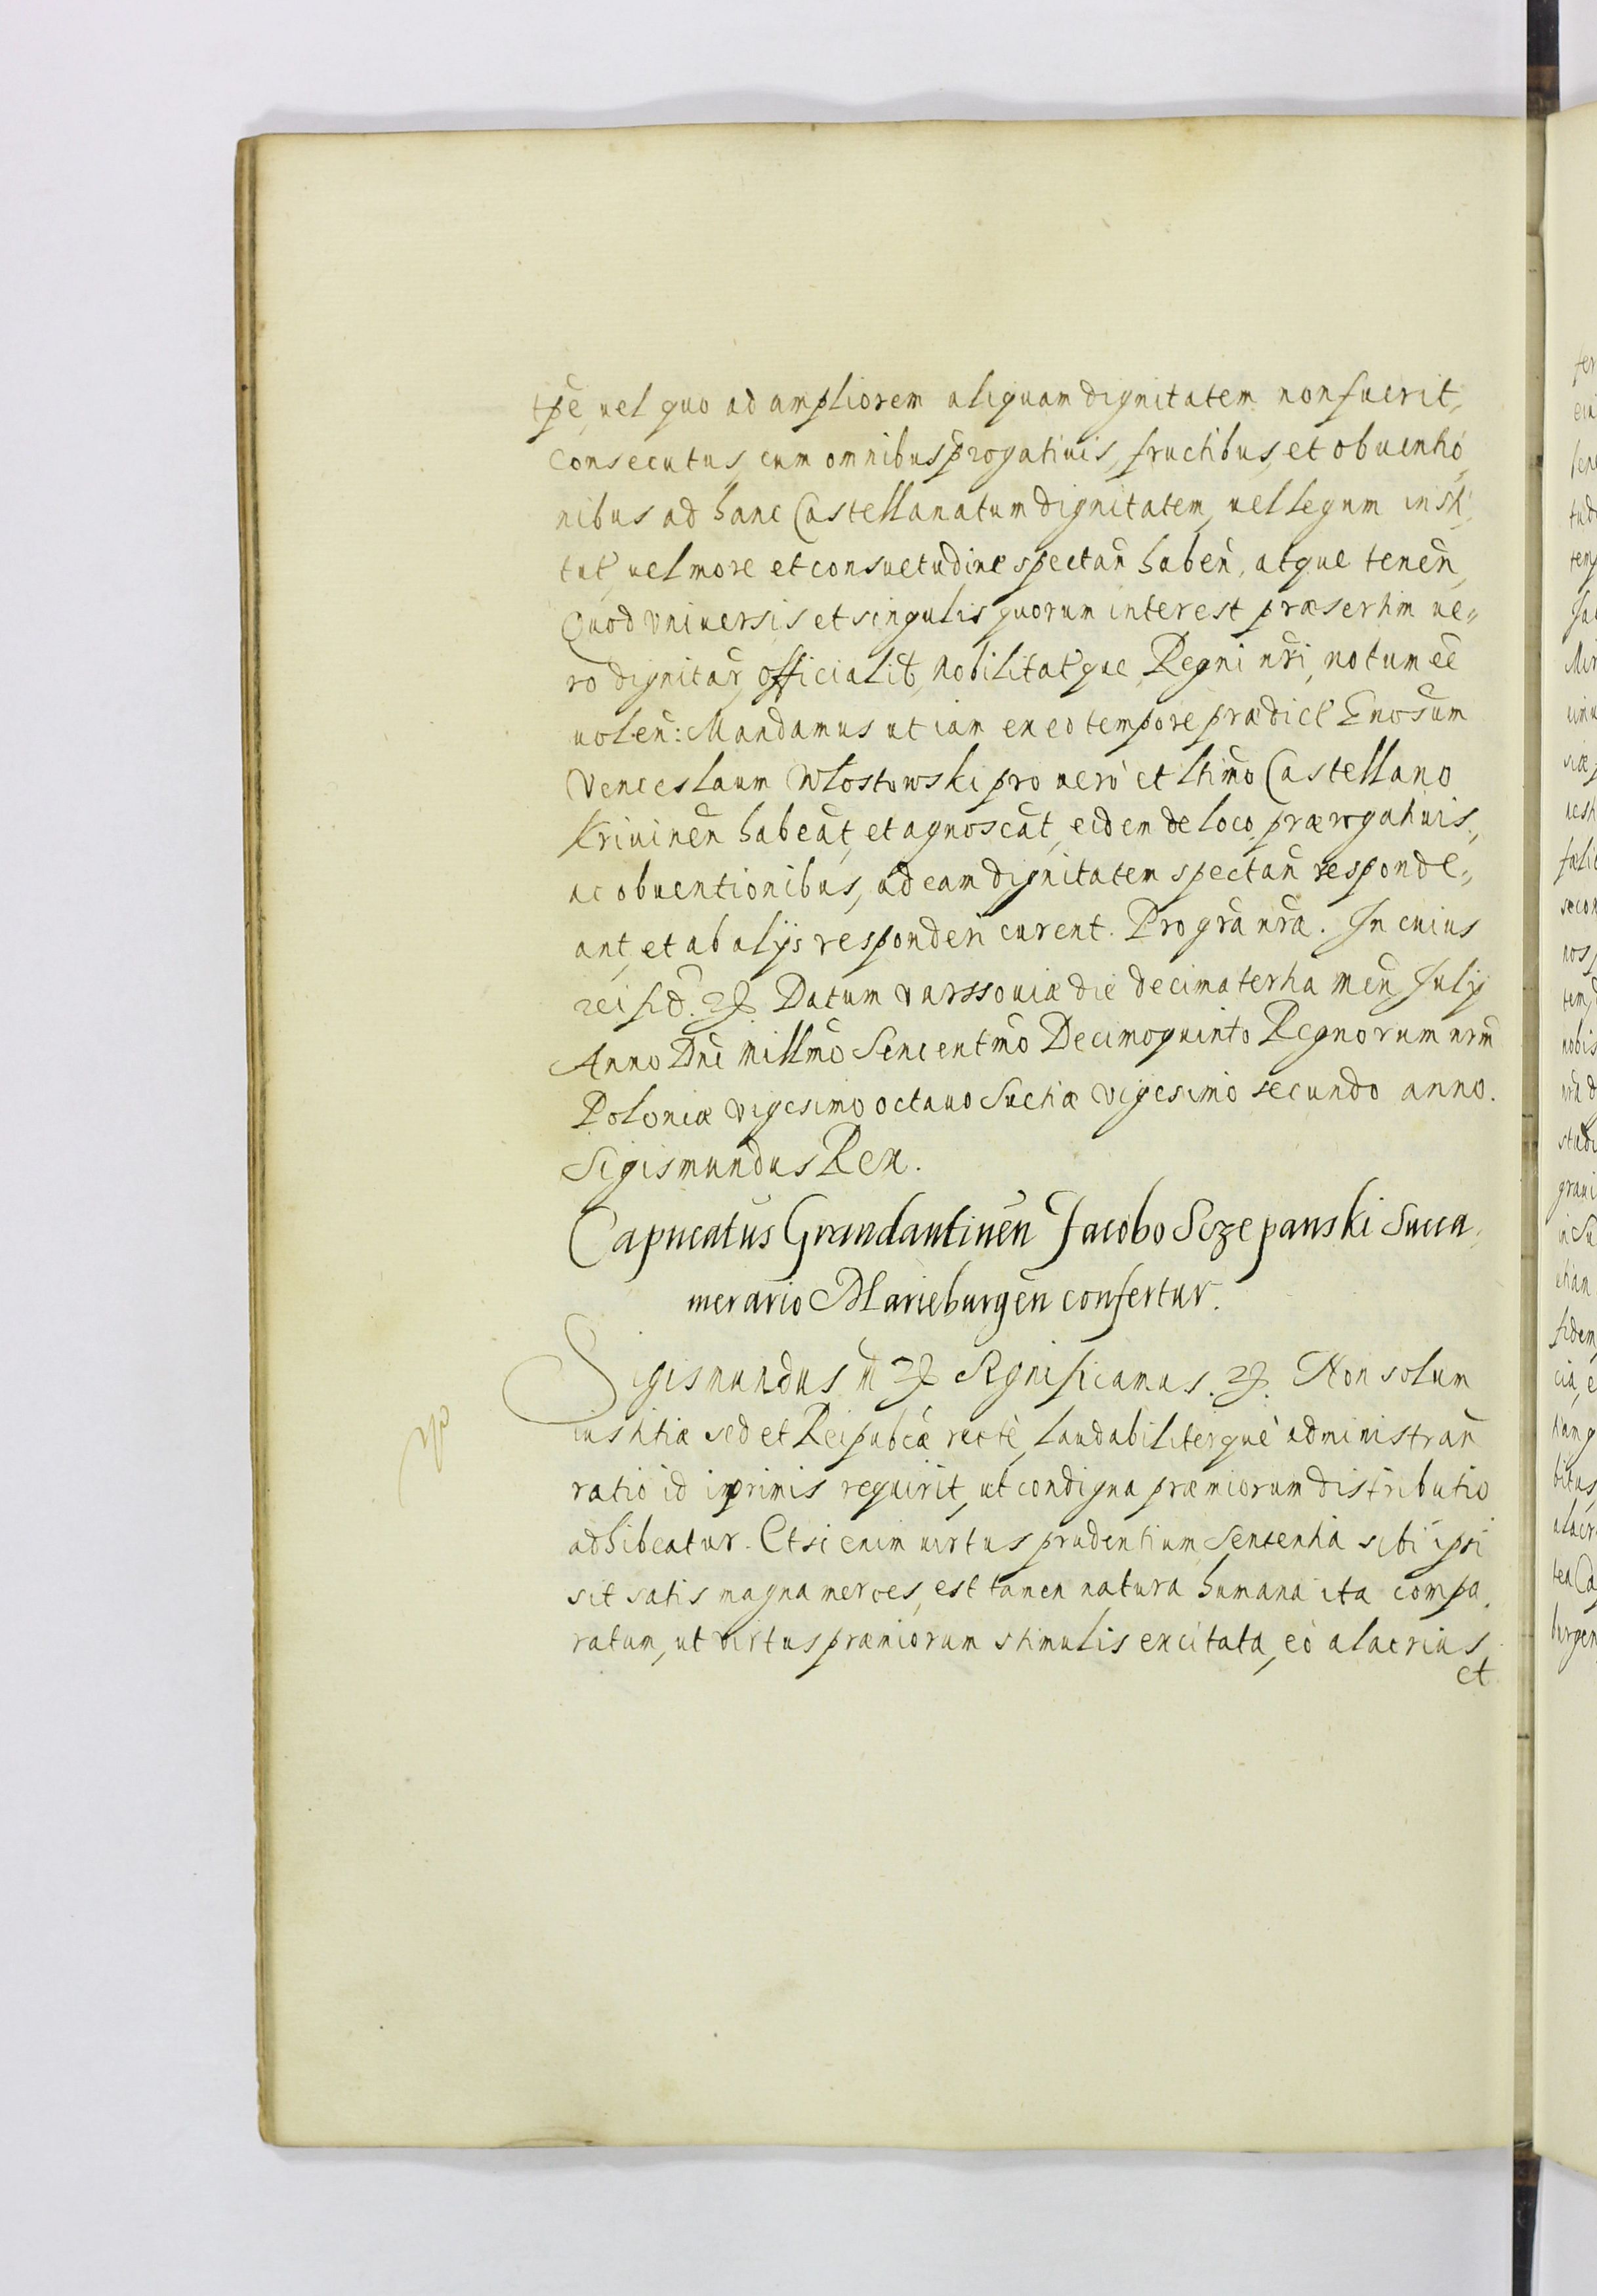 tpẽ, uel quo ad ampliorem aliquam dignitatem non fuerit,
consecutus, cum omnibus p̃rogatiuis, fructibus, et obuentio,
nibus ad hanc Castellanatum dignitatem, uel legum insti,
tut, uel more et consuetudine spectañ habeñ, atque teneñ,
Quod vniuersis et singulis quorum interest præsertim ue„
ro dignitar̃, officialib, nobilitatque Regni nr̃i, notum eẽ
uoleñ: Mandamus ut iam ex eo tempore prædict Gnosum
Venceslaum Wlostowski pro uero et ltimõ Castellano
Kriuineñ habeãt, et agnoscãt, eidem de loco, prærogatiuis„
ac obuentionibus, ad eam dignitatem spectañ responde„
ant, et ab alijs responderi curent. Pro grã nrã. In cuius
rei fid. &. Datum varssouiæ die decima tertia Meñ July
Anno Dnĩ Millmõ Sexcentmõ Decimoquinto Regnorum nrm̃
Poloniæ vigesimo octauo Suetiæ vigesimo secundo anno.
Sigismundus Rex.
Capneatus Graudautineñ Jacobo Sczepanski Succa,
merario Marieburgeñ confertur.
Sigismundus III & Significamus. &. Non solum
iustitiæ sed et Reipubcæ recte, laudabiliterque administrañ
ratio id inprimis requirit, ut condigna præmiorum distributio
adhibeatur. Etsi enim uirtus prudentium sententia sibi ipsi
sit satis magna merces, est tamen natura humana ita compa,
ratum, ut virtus præmiorum stimulis excitata, eo alacrius
et